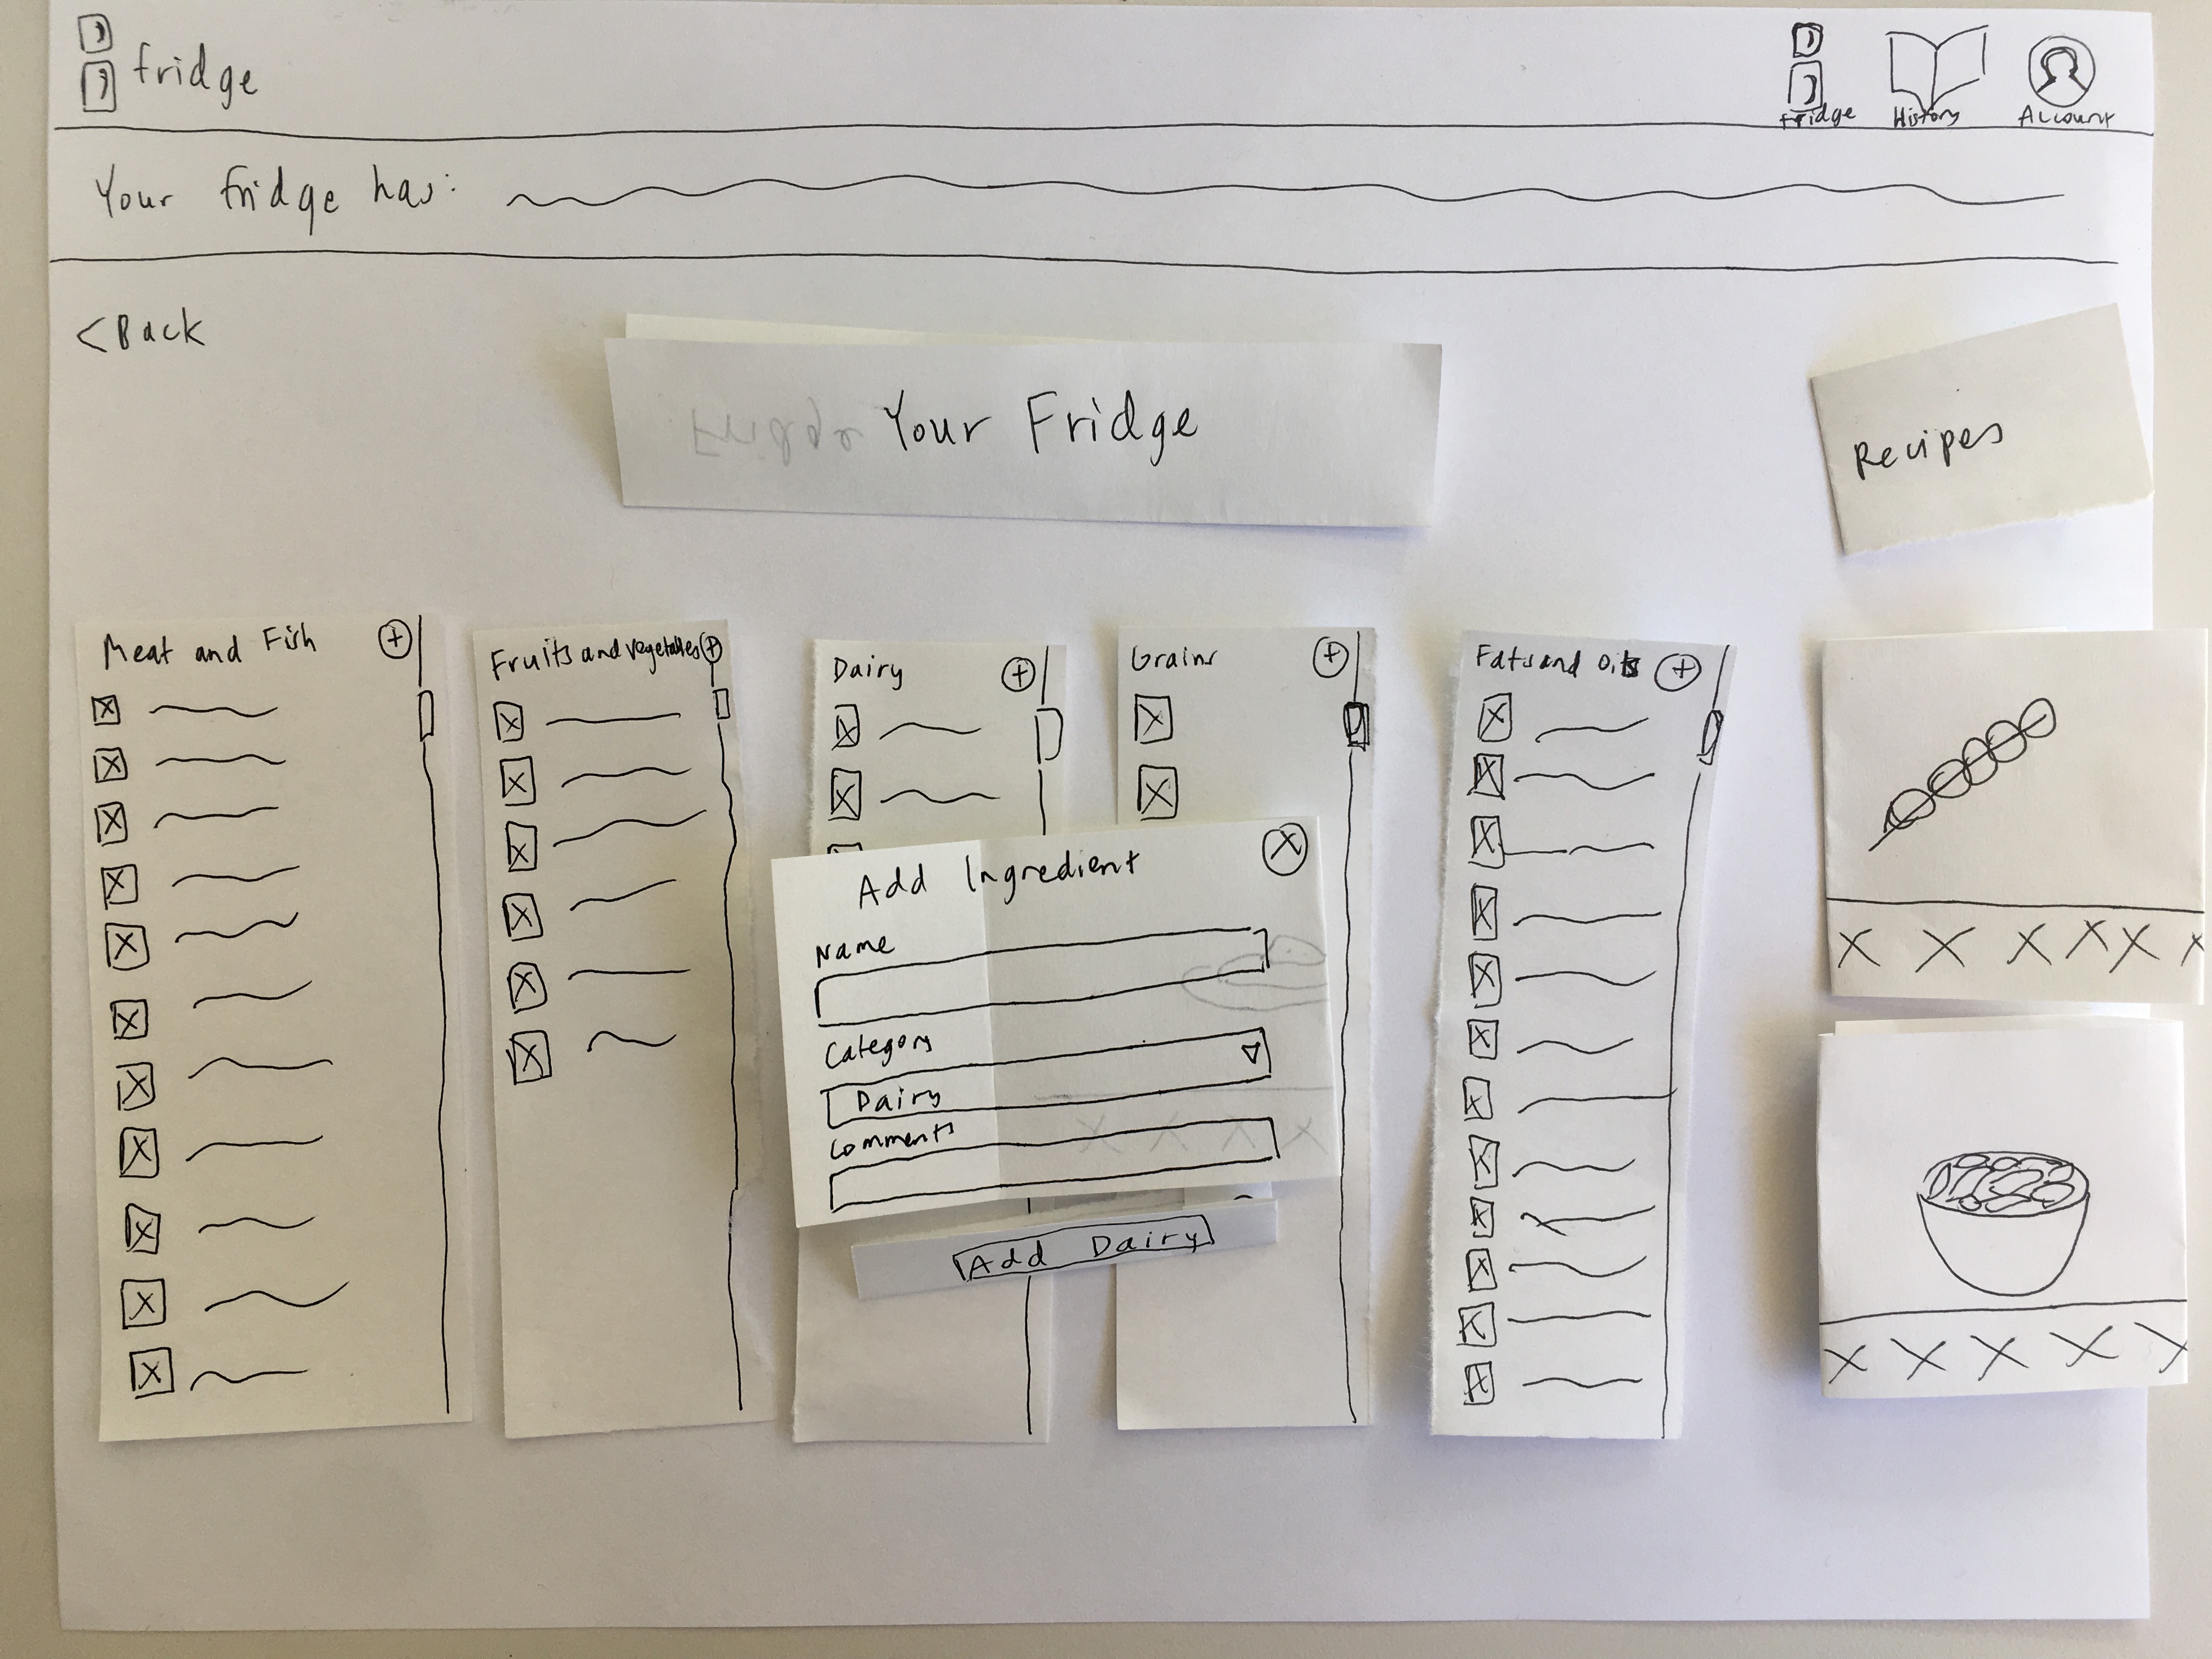 fridge
Fridge
History
Account
Your fridge has:
< Back
Your Fridge
Recipes
Meat and Fish
Fruits and vegetables
Dairy
Grains
Fats and oils
Add Ingredient
Name
Category
Dairy
Comments
Add Dairy